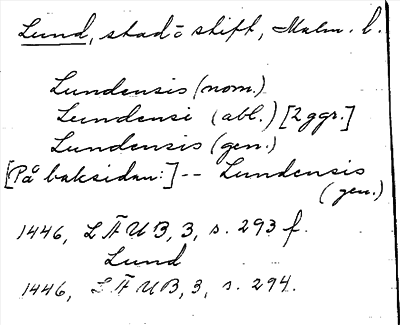 Lund, stad o stift, Malm. l.
Lundensis (nom.)
Lundensi (abl.) [2 ggr.]
Lundensis (gen.)
[På baksidan:] -- Lundensis
(gen.)
1446, LÄUB, 3, s. 293 f.
Lund
1446, LÄUB, 3, s. 294.